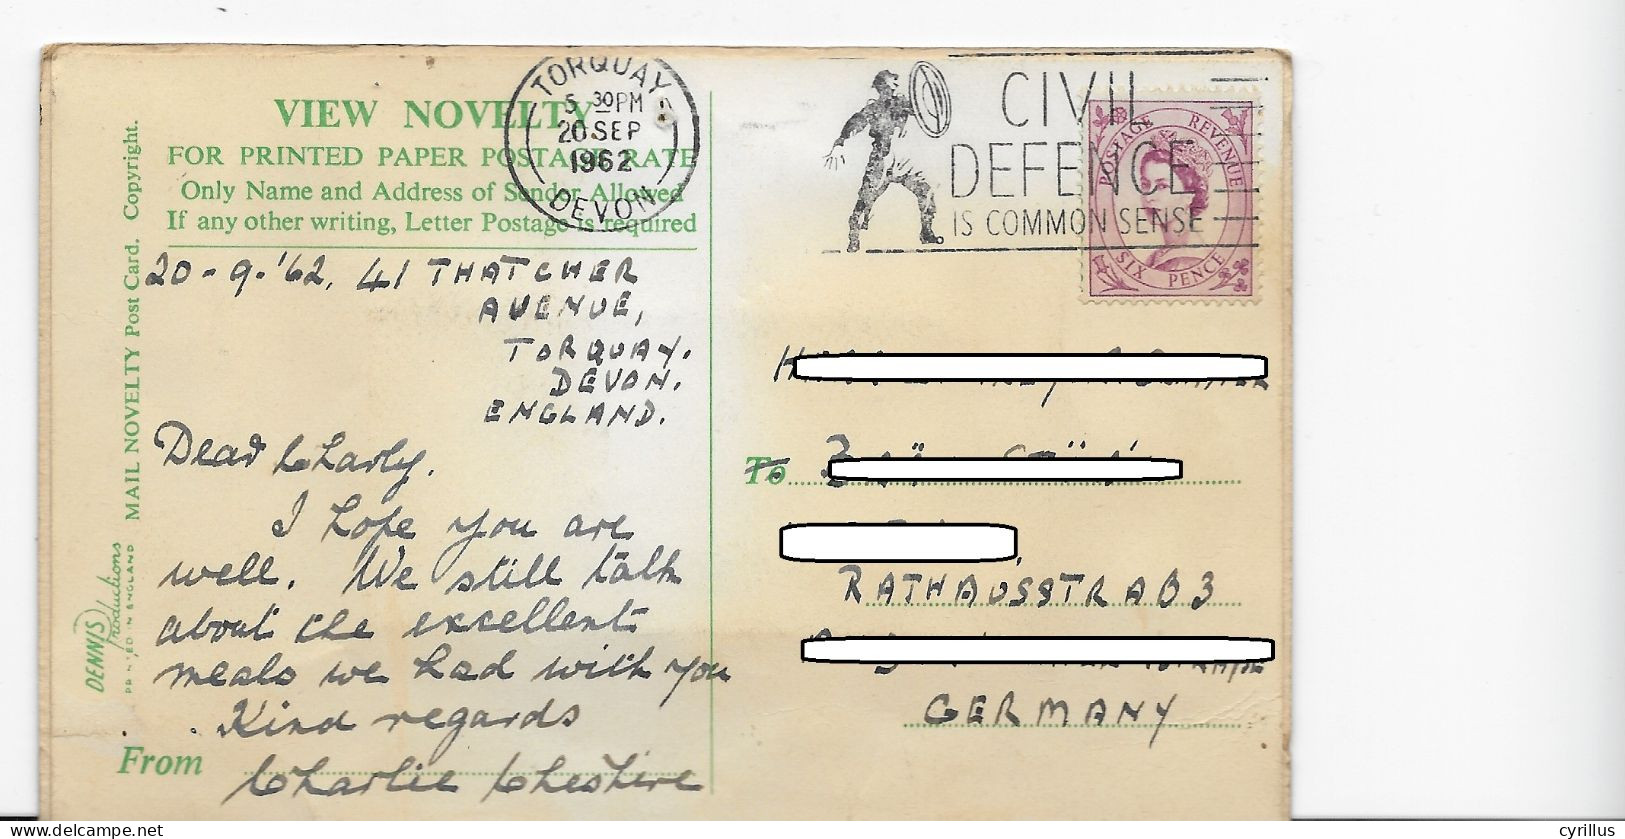 VIEW NOVELTY
FOR PRINTED PAPER POSTAGE RATE
Only Name and Address of Sender Allowed
If any other writing, Letter Postage is required
TORQUAY
5 30PM
20 SEP
1962
DEVON
CIVIL
DEFENCE
IS COMMON SENSE
POSTAGE REVENUE
SIX PENCE
MAIL NOVELTY Post Card. Copyright.
DENNIS Productions
PRINTED IN ENGLAND
20-9-'62, 41 THATCHER
AVENUE,
TORQUAY.
DEVON.
ENGLAND.
Dear Charly.
I hope you are
well. We still talk
about the excellent
meals we had with you
Kind regards
From Charlie Cheshire
To
RATHAUSSTRAB 3
GERMANY
delcampe.net
cyrillus